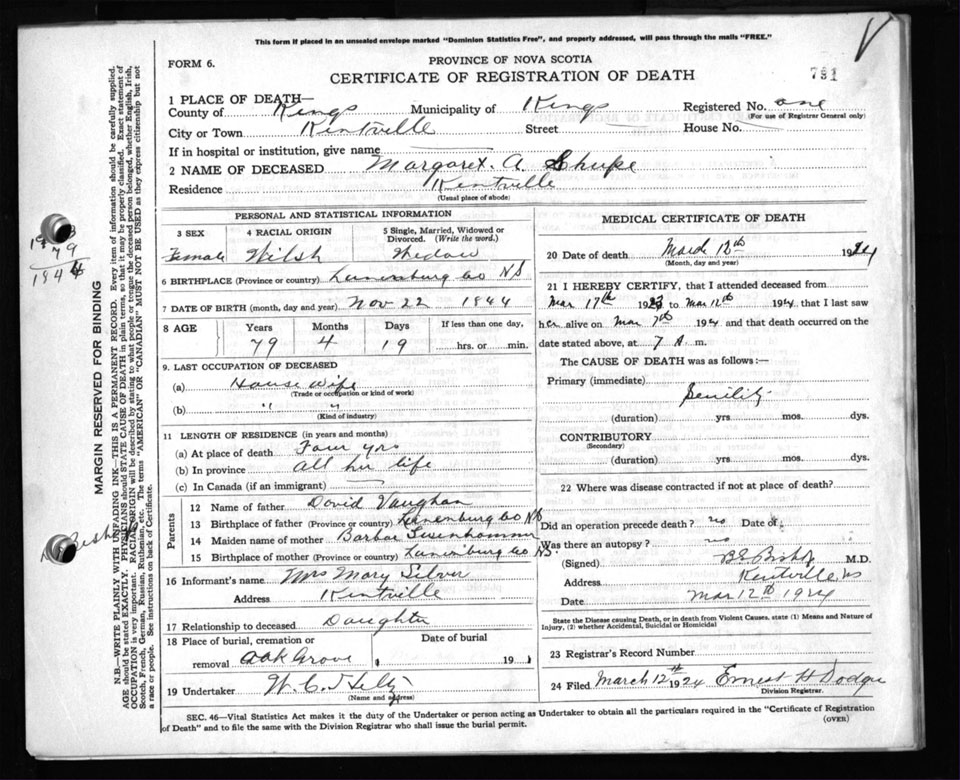 This form if placed in an unsealed envelope marked "Dominion Statistics Free", and properly addressed, will pass through the mails "FREE."
FORM 6.
PROVINCE OF NOVA SCOTIA
CERTIFICATE OF REGISTRATION OF DEATH
791
1 PLACE OF DEATH—
County of Kings Municipality of Kings Registered No. one
(For use of Registrar General only)
City or Town Kentville Street House No.
If in hospital or institution, give name
2 NAME OF DECEASED Margaret. A.
Residence Kentville
(Usual place of abode)
PERSONAL AND STATISTICAL INFORMATION
3 SEX 4 RACIAL ORIGIN 5 Single, Married, Widowed or Divorced. (Write the word.)
Female Widow
6 BIRTHPLACE (Province or country) Lunenburg Co NS
7 DATE OF BIRTH (month, day and year) Nov 22 1844
8 AGE Years Months Days If less than one day,
79 4 19 hrs. or min.
9. LAST OCCUPATION OF DECEASED
(a) House wife
(Trade or occupation or kind of work)
(b) " "
(Kind of industry)
11 LENGTH OF RESIDENCE (in years and months)
(a) At place of death Four yrs
(b) In province all her life
(c) In Canada (if an immigrant)
Parents
12 Name of father David Vaughan
13 Birthplace of father (Province or country) Lunenburg Co NS
14 Maiden name of mother
15 Birthplace of mother (Province or country) Lunenburg Co NS.
16 Informant's name Mrs Mary Silver
Address Kentville
17 Relationship to deceased Daughter
18 Place of burial, cremation or removal Oak Grove Date of burial 19
19 Undertaker
(Name and address)
MEDICAL CERTIFICATE OF DEATH
20 Date of death March 12th 1924
(Month, day and year)
21 I HEREBY CERTIFY, that I attended deceased from
Mar 17th 1923 to Mar 12th 1924, that I last saw
her alive on Mar 7th 1924 and that death occurred on
date stated above, at 7 A. m.
The CAUSE OF DEATH was as follows:—
Primary (immediate)
Senility
(duration) yrs. mos. dys.
CONTRIBUTORY
(Secondary)
(duration) yrs. mos. dys.
22 Where was disease contracted if not at place of death?
Did an operation precede death? no Date of
Was there an autopsy? no
(Signed) Bishop M.D.
Address Kentville NS
Date Mar 12th 1924
State the Disease causing Death, or in death from Violent Causes, state (1) Means and Nature of Injury, (2) whether Accidental, Suicidal or Homicidal
23 Registrar's Record Number
24 Filed March 12th 1924 Ernest H Dodge
Division Registrar.
SEC. 46—Vital Statistics Act makes it the duty of the Undertaker or person acting as Undertaker to obtain all the particulars required in the "Certificate of Registration
of Death" and to file the same with the Division Registrar who shall issue the burial permit.
(OVER)
MARGIN RESERVED FOR BINDING
N.B.—WRITE PLAINLY WITH UNFADING INK—THIS IS A PERMANENT RECORD. Every item of information should be carefully supplied.
AGE should be stated EXACTLY. PHYSICIANS should STATE CAUSE OF DEATH in plain terms, so that it may be properly classified. Exact statement of
OCCUPATION is very important. RACIAL ORIGIN will be described by stating to what people or tongue the deceased person belonged, whether English, Irish,
Scotch, French, German, Russian, Ruthenian, etc. The terms "AMERICAN" or "CANADIAN" MUST NOT BE USED as they express citizenship but not
a race or people. See instructions on back of Certificate.
79
1844